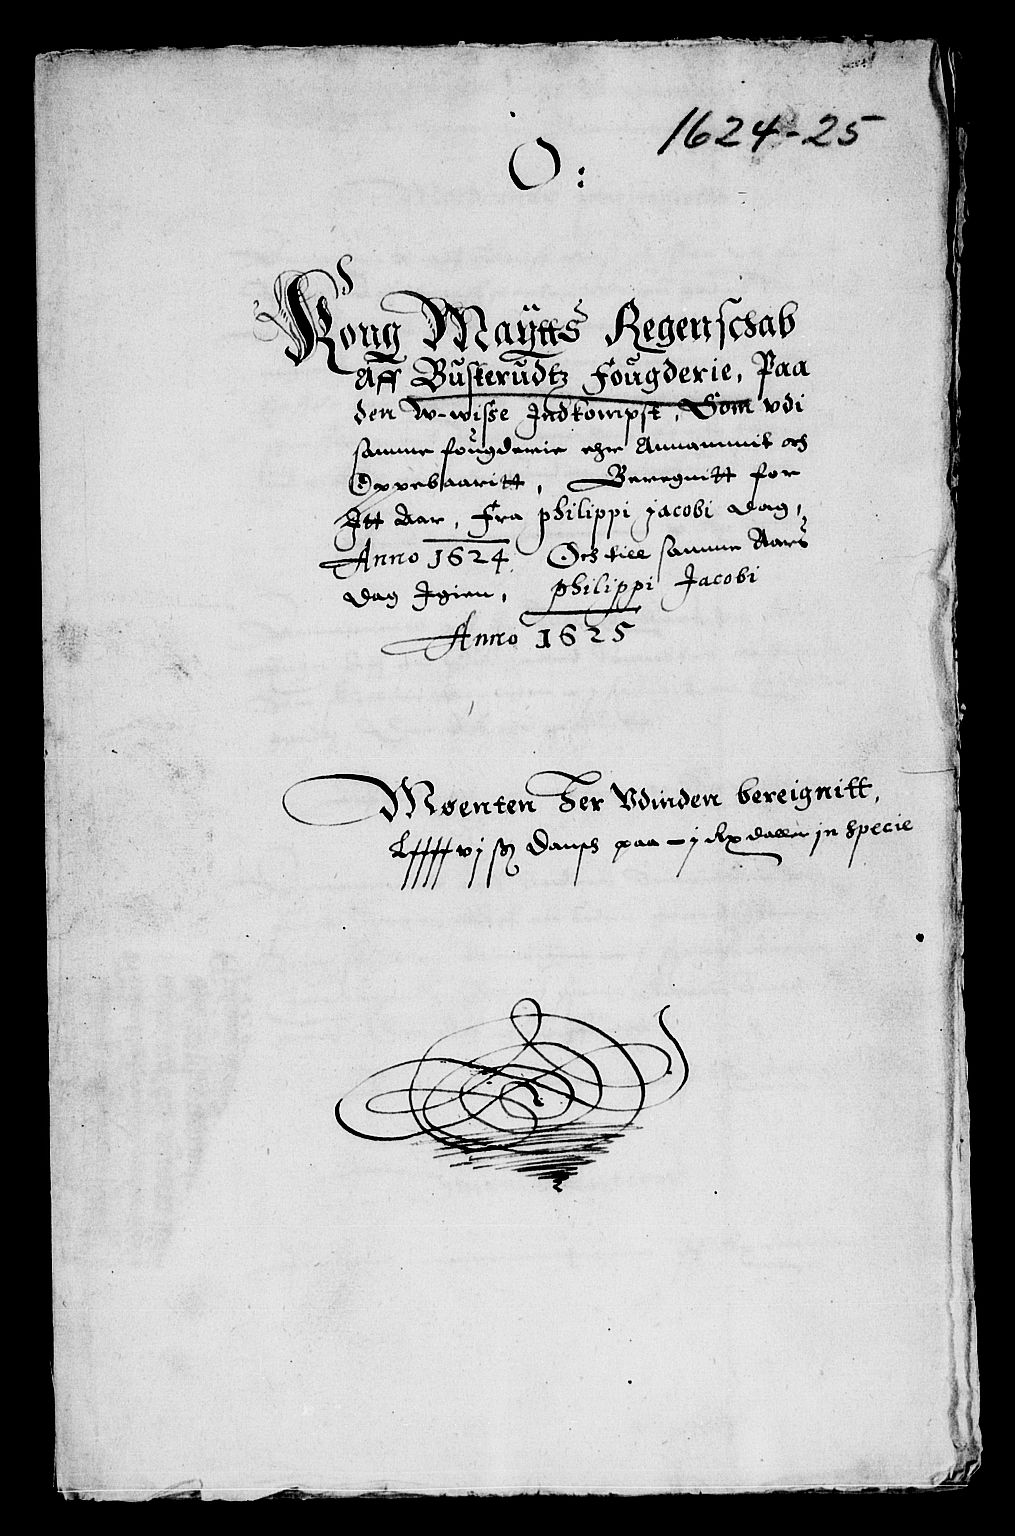 1624-25
O:
Kong Maÿtts Regennschab
Aff Buskerudtz Fougderie, Paa
den W-wisse Indkompst, Som vdi
samme fougderie ehr Annammit och
Oppebaaritt, Beregnitt for
Itt Aar, Fra philippi jacobi Dag,
Anno 1624 Och till samme Aars
Dag Igien, philippi Jacobi
Anno 1625
Møenten her Vdinden bereignitt,
vj ß Dansk paa j Rx daller jn specie